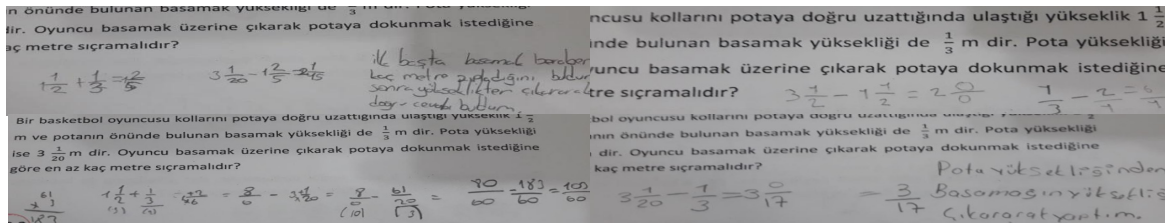 önünde bulunan basamak yüksekliği de 1/3 m dir.
dir. Oyuncu basamak üzerine çıkarak potaya dokunmak istediğine
aç metre sıçramalıdır?
1 1/2 + 1/3 = 1 2/5
3 1/20 - 1 2/5 = 2 1/15
ilk başta basamak beraber
kaç metre zıpladığını buldum
sonra yükseklikten çıkararak
doğru cevabı buldum.
ncusu kollarını potaya doğru uzattığında ulaştığı yükseklik 1 1/2
inde bulunan basamak yüksekliği de 1/3 m dir. Pota yüksekliği
yuncu basamak üzerine çıkarak potaya dokunmak istediğine
tre sıçramalıdır?
3 1/2 - 1 1/2 = 2 0/0
1/3 - 2/1 =
Bir basketbol oyuncusu kollarını potaya doğru uzattığında ulaştığı yükseklik 1 1/2
m ve potanın önünde bulunan basamak yüksekliği de 1/3 m dir. Pota yüksekliği
ise 3 1/20 m dir. Oyuncu basamak üzerine çıkarak potaya dokunmak istediğine
göre en az kaç metre sıçramalıdır?
61
x 3
183
1 1/2 + 1/3
(3) (2)
= 8/6 - 3 1/20 = 8/6 - 61/20 =
(10) (3)
80/60 - 183/60 = 103/60
bol oyuncusu kollarını potaya doğru uzattığında
nın önünde bulunan basamak yüksekliği de 1/3 m dir. Pota yüksekliği
dir. Oyuncu basamak üzerine çıkarak potaya dokunmak istediğine
kaç metre sıçramalıdır?
3 1/20 - 1/3 = 3 0/17
= 3/17
Pota yüksekliğinden
Basamağın yüksekliğ
çıkararak yaptım.